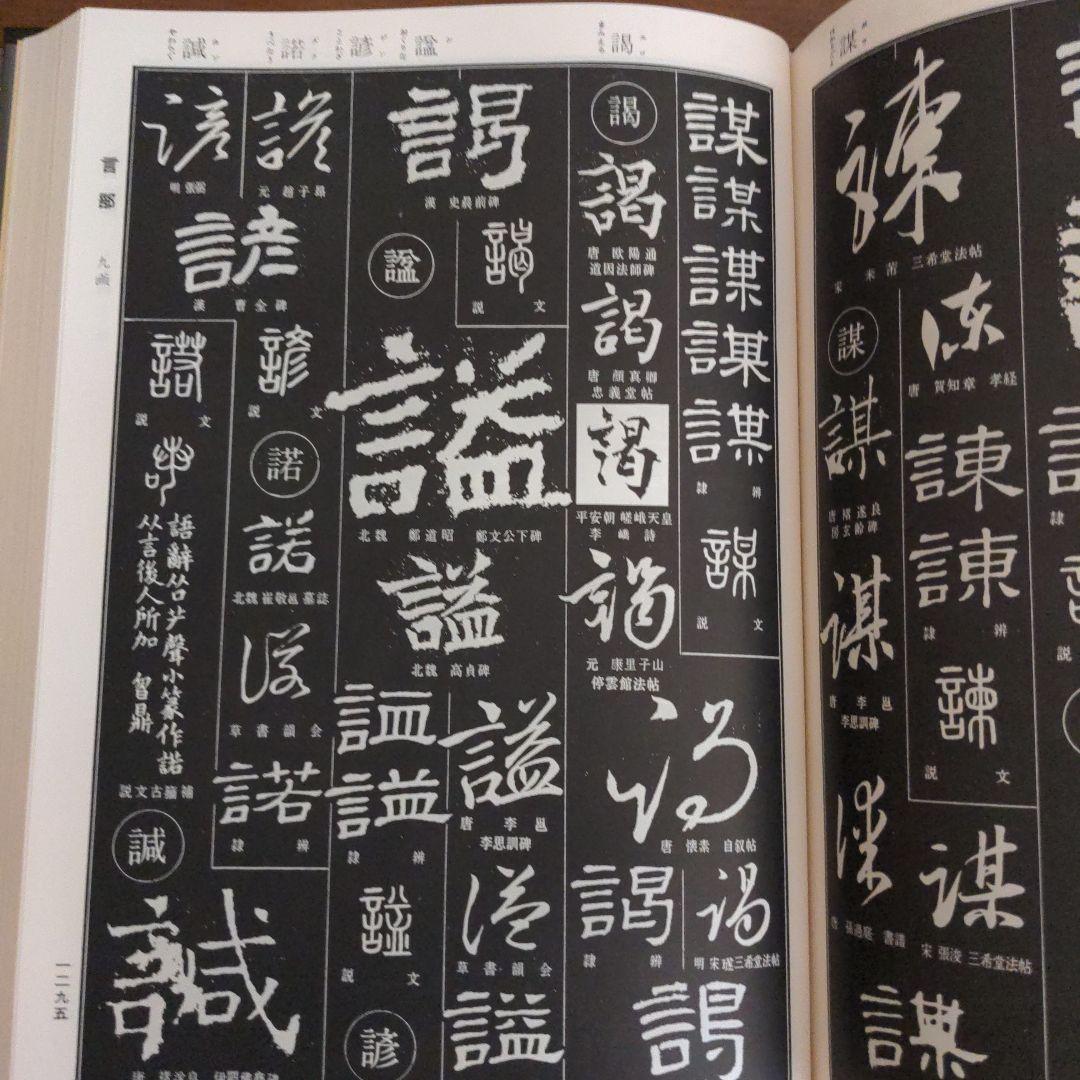 謀
諫
宋 芾 三希堂法帖
諫
唐 賀知章 孝経
諫
諫
隷 辨
諫
説 文
謀
謀
唐 褚遂良
房玄齡碑
謀
唐 李邕
李思訓碑
謀
唐 孫過庭 書譜
謀
宋 張浚 三希堂法帖
謀
謁
諡
諺
諾
諴
謀
謀
謀
謀
謀
隷 辨
謀
説 文
謁
謁
唐 欧陽通
道因法師碑
謁
唐 顔真卿
忠義堂帖
謁
平安朝 嵯峨天皇
李嶠詩
謁
元 康里子山
停雲館法帖
謁
唐 懐素 自叙帖
謁
隷 辨
謁
明 宋璲 三希堂法帖
謁
謁
漢 史晨前碑
謁
説 文
諡
諡
北魏 鄭道昭 鄭文公下碑
諡
北魏 高貞碑
諡
諡
隷 辨
諡
唐 李邕
李思訓碑
諡
説 文
諡
草書韻会
諡
諺
諺
元 趙子昂
諺
明 張弼
諺
漢 曹全碑
諺
説 文
諾
諾
北魏 崔敬邕墓誌
諾
草書韻会
諾
隷 辨
諾
説 文
語辭
聲小篆作諾
从言後人所加 智鼎
説文古籀補
諴
諴
言部
九画
一二九五